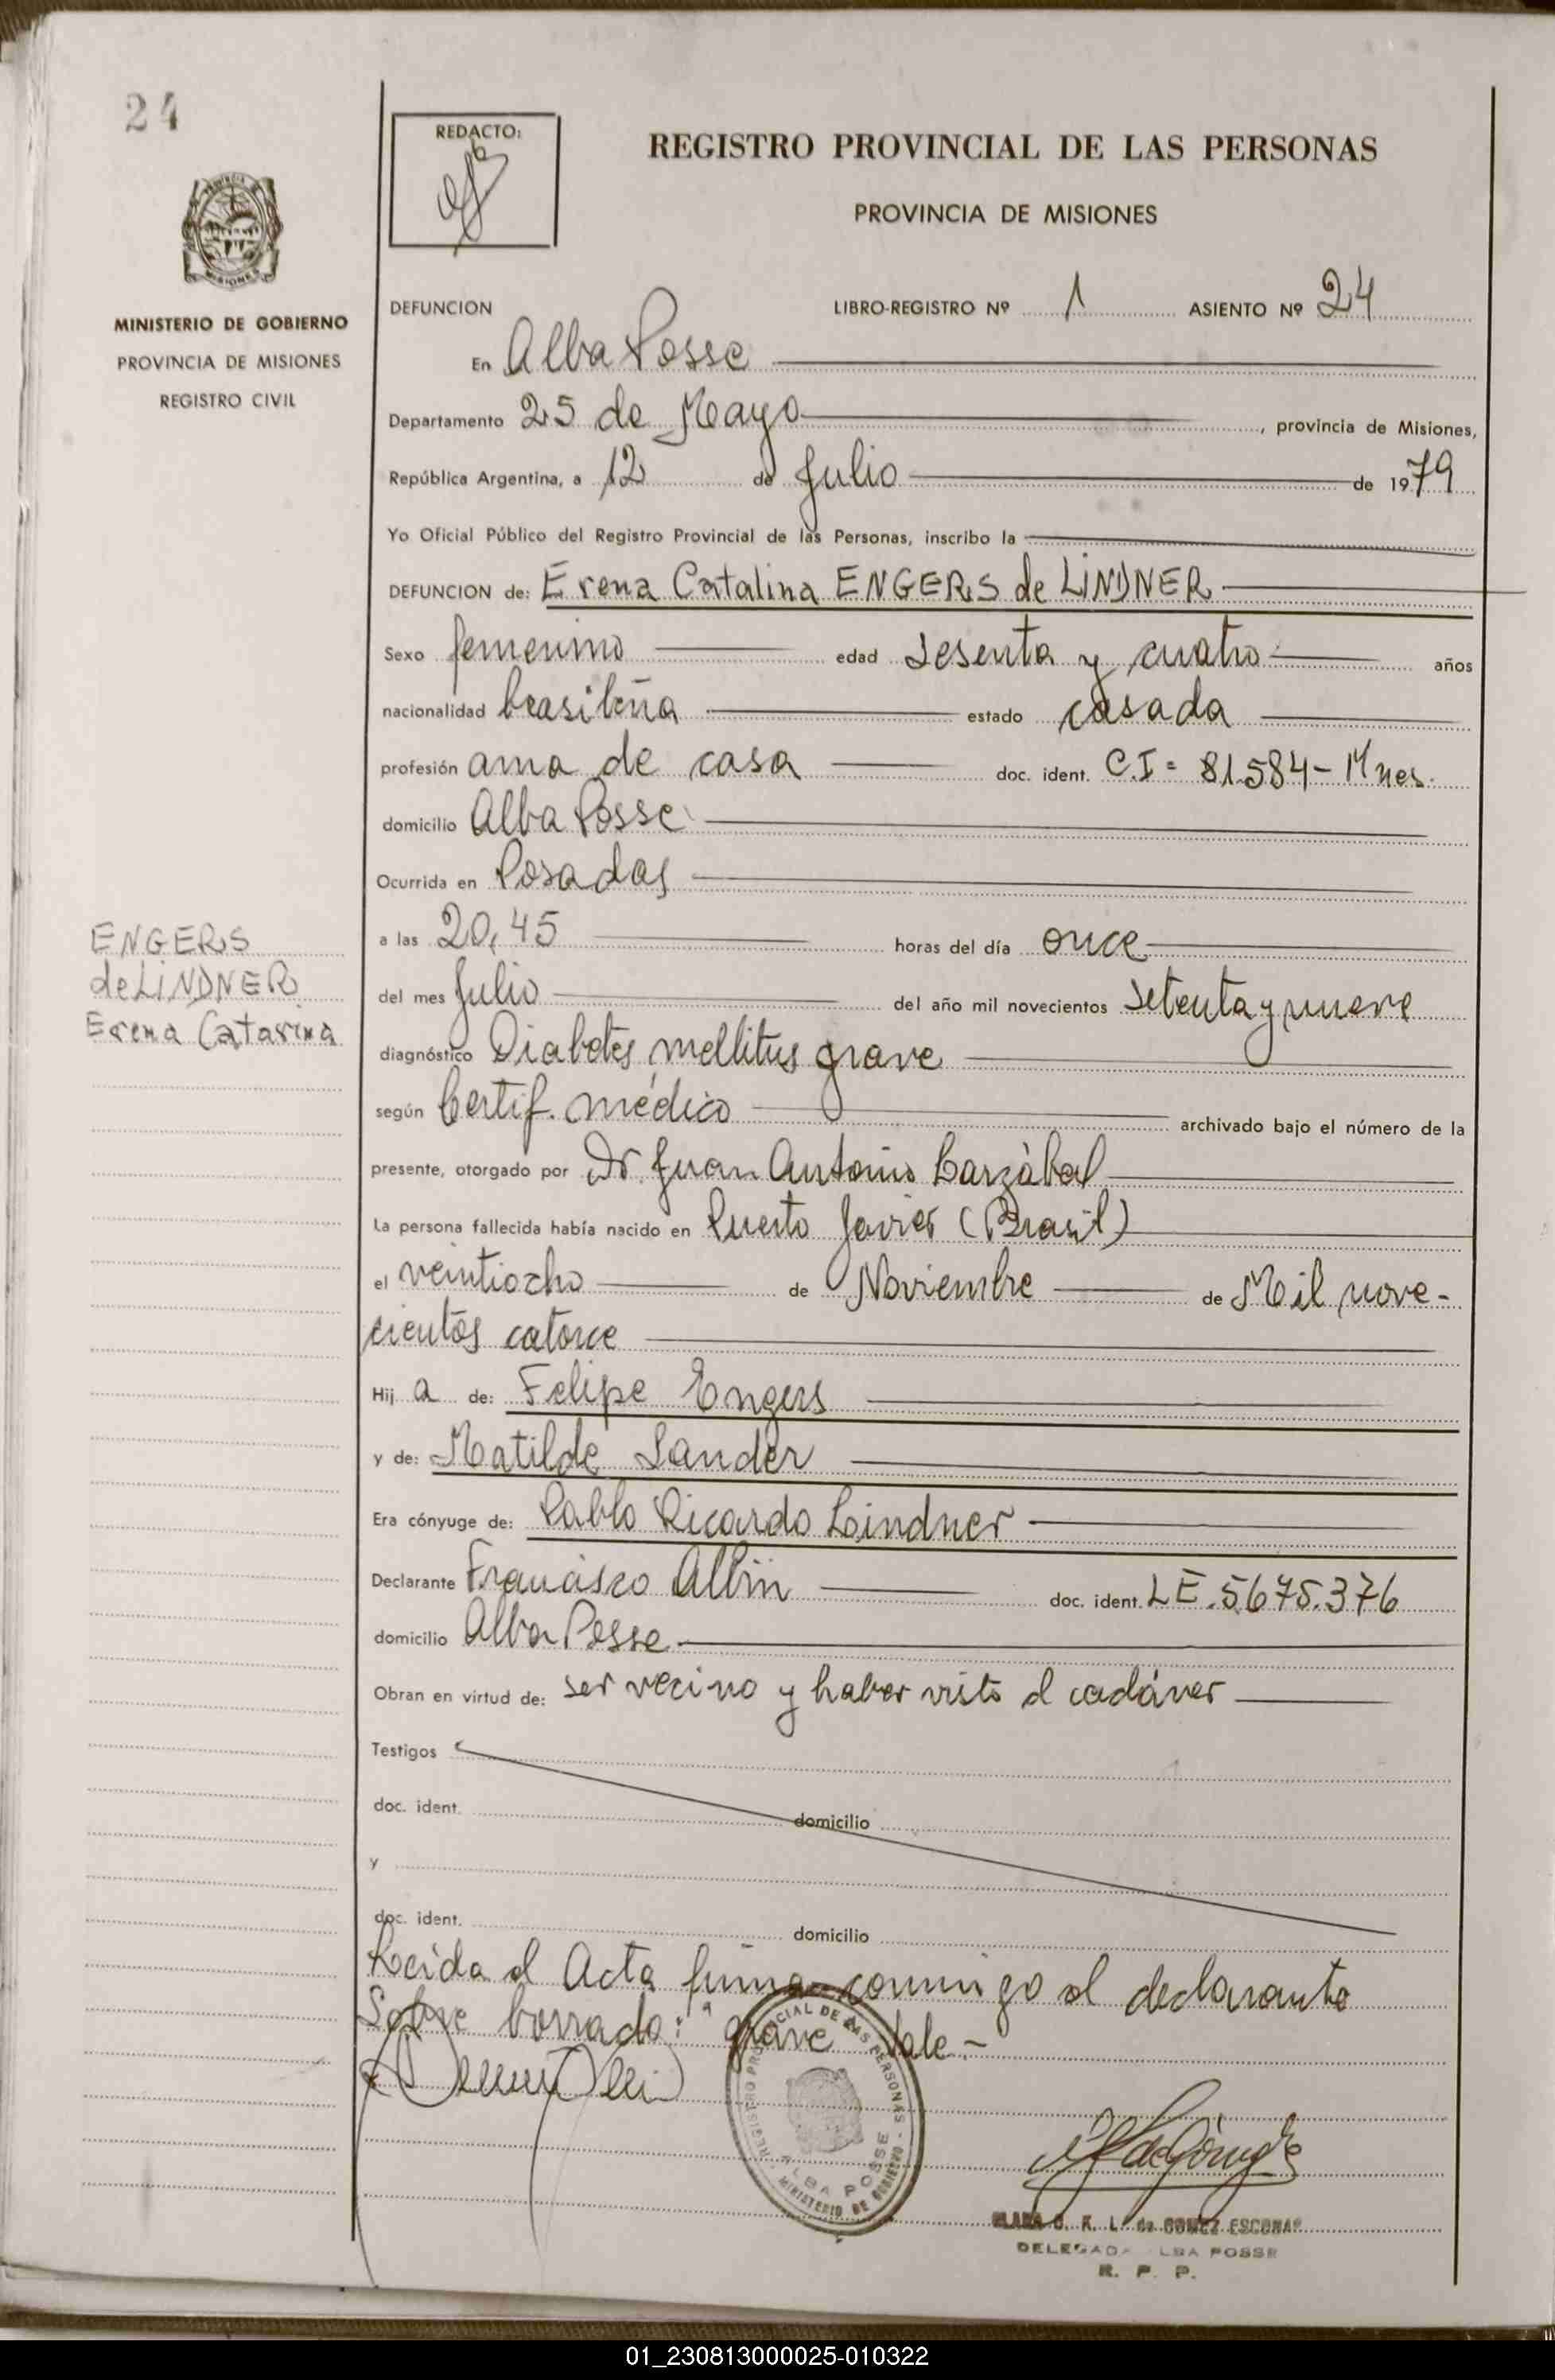 24
REDACTO:
REGISTRO PROVINCIAL DE LAS PERSONAS
PROVINCIA DE MISIONES
MINISTERIO DE GOBIERNO
PROVINCIA DE MISIONES
REGISTRO CIVIL
DEFUNCION LIBRO-REGISTRO Nº 1 ASIENTO Nº 24
En Alba Posse
Departamento 25 de Mayo, provincia de Misiones,
República Argentina, a 12 de Julio de 1979
Yo Oficial Público del Registro Provincial de las Personas, inscribo la
DEFUNCION de: Erena Catalina ENGERS de LINDNER
Sexo femenino edad sesenta y cuatro años
nacionalidad brasileña estado casada
profesión ama de casa doc. ident. C.I= 81.584- Mnes.
domicilio Alba Posse
Ocurrida en Posadas
a las 20,45 horas del día once
del mes Julio del año mil novecientos setenta y nueve
ENGERS
de LINDNER
Erena Catarina
diagnóstico Diabetes mellitus grave
según Certif. médico archivado bajo el número de la
presente, otorgado por Dr. Juan Antonio Barzàbal
La persona fallecida había nacido en Puerto Javier (Brasil)
el veintiocho de Noviembre de Mil nove-
cientos catorce
Hij a de: Felipe Engers
y de: Matilde Sander
Era cónyuge de: Pablo Ricardo Lindner
Declarante Francisco Albin doc. ident. LE.5.675.376
domicilio Alba Posse
Obran en virtud de: ser vecino y haber visto el cadáver
Testigos
doc. ident. domicilio
y
doc. ident. domicilio
Leída el Acta firma conmigo el declarante
Sobre borrado: "grave Vale.-
REGISTRO PROVINCIAL DE LAS PERSONAS - MINISTERIO DE GOBIERNO
ALBA POSSE
de GOMEZ ESCOBAR
DELEGADA ALBA POSSE
R. P. P.
01_230813000025-010322